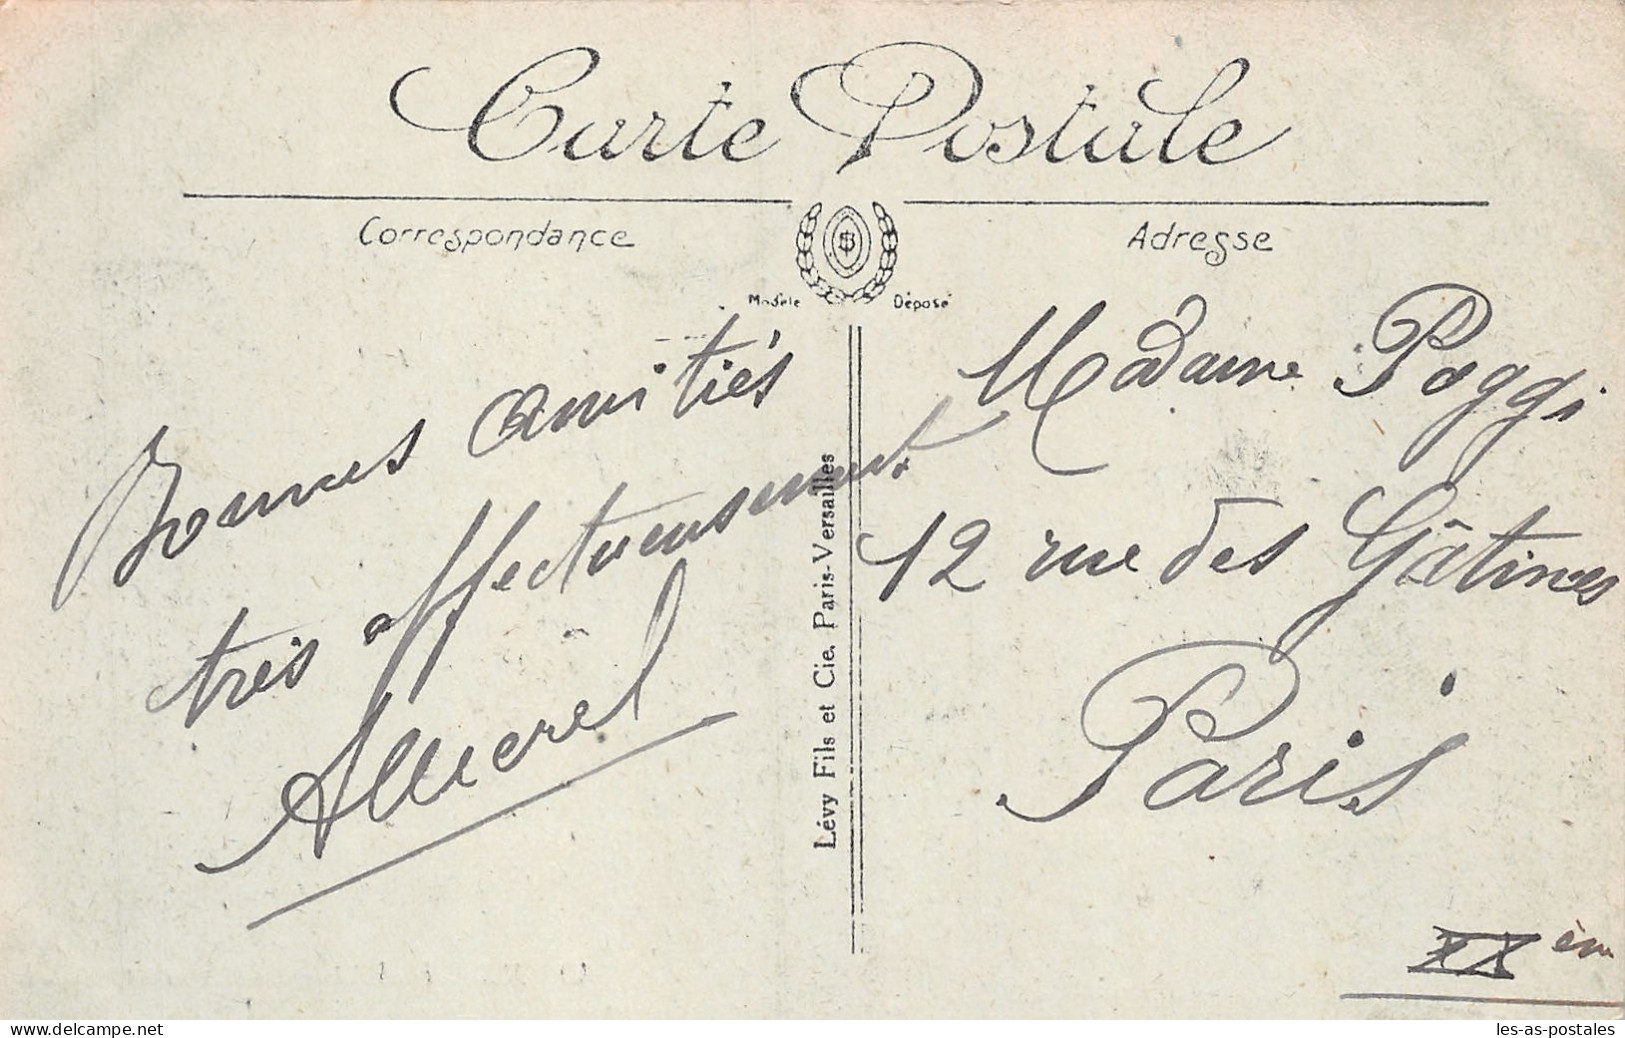 Carte Postale
Correspondance
Adresse
Modèle Déposé
Bonnes amitiés
très affectueusement.
Madame Poggi
12 rue des Gâtines
Paris
XXèm
Lévy Fils et Cie. Paris-Versailles
www.les-as-postales.delcampe.net
les-as-postales